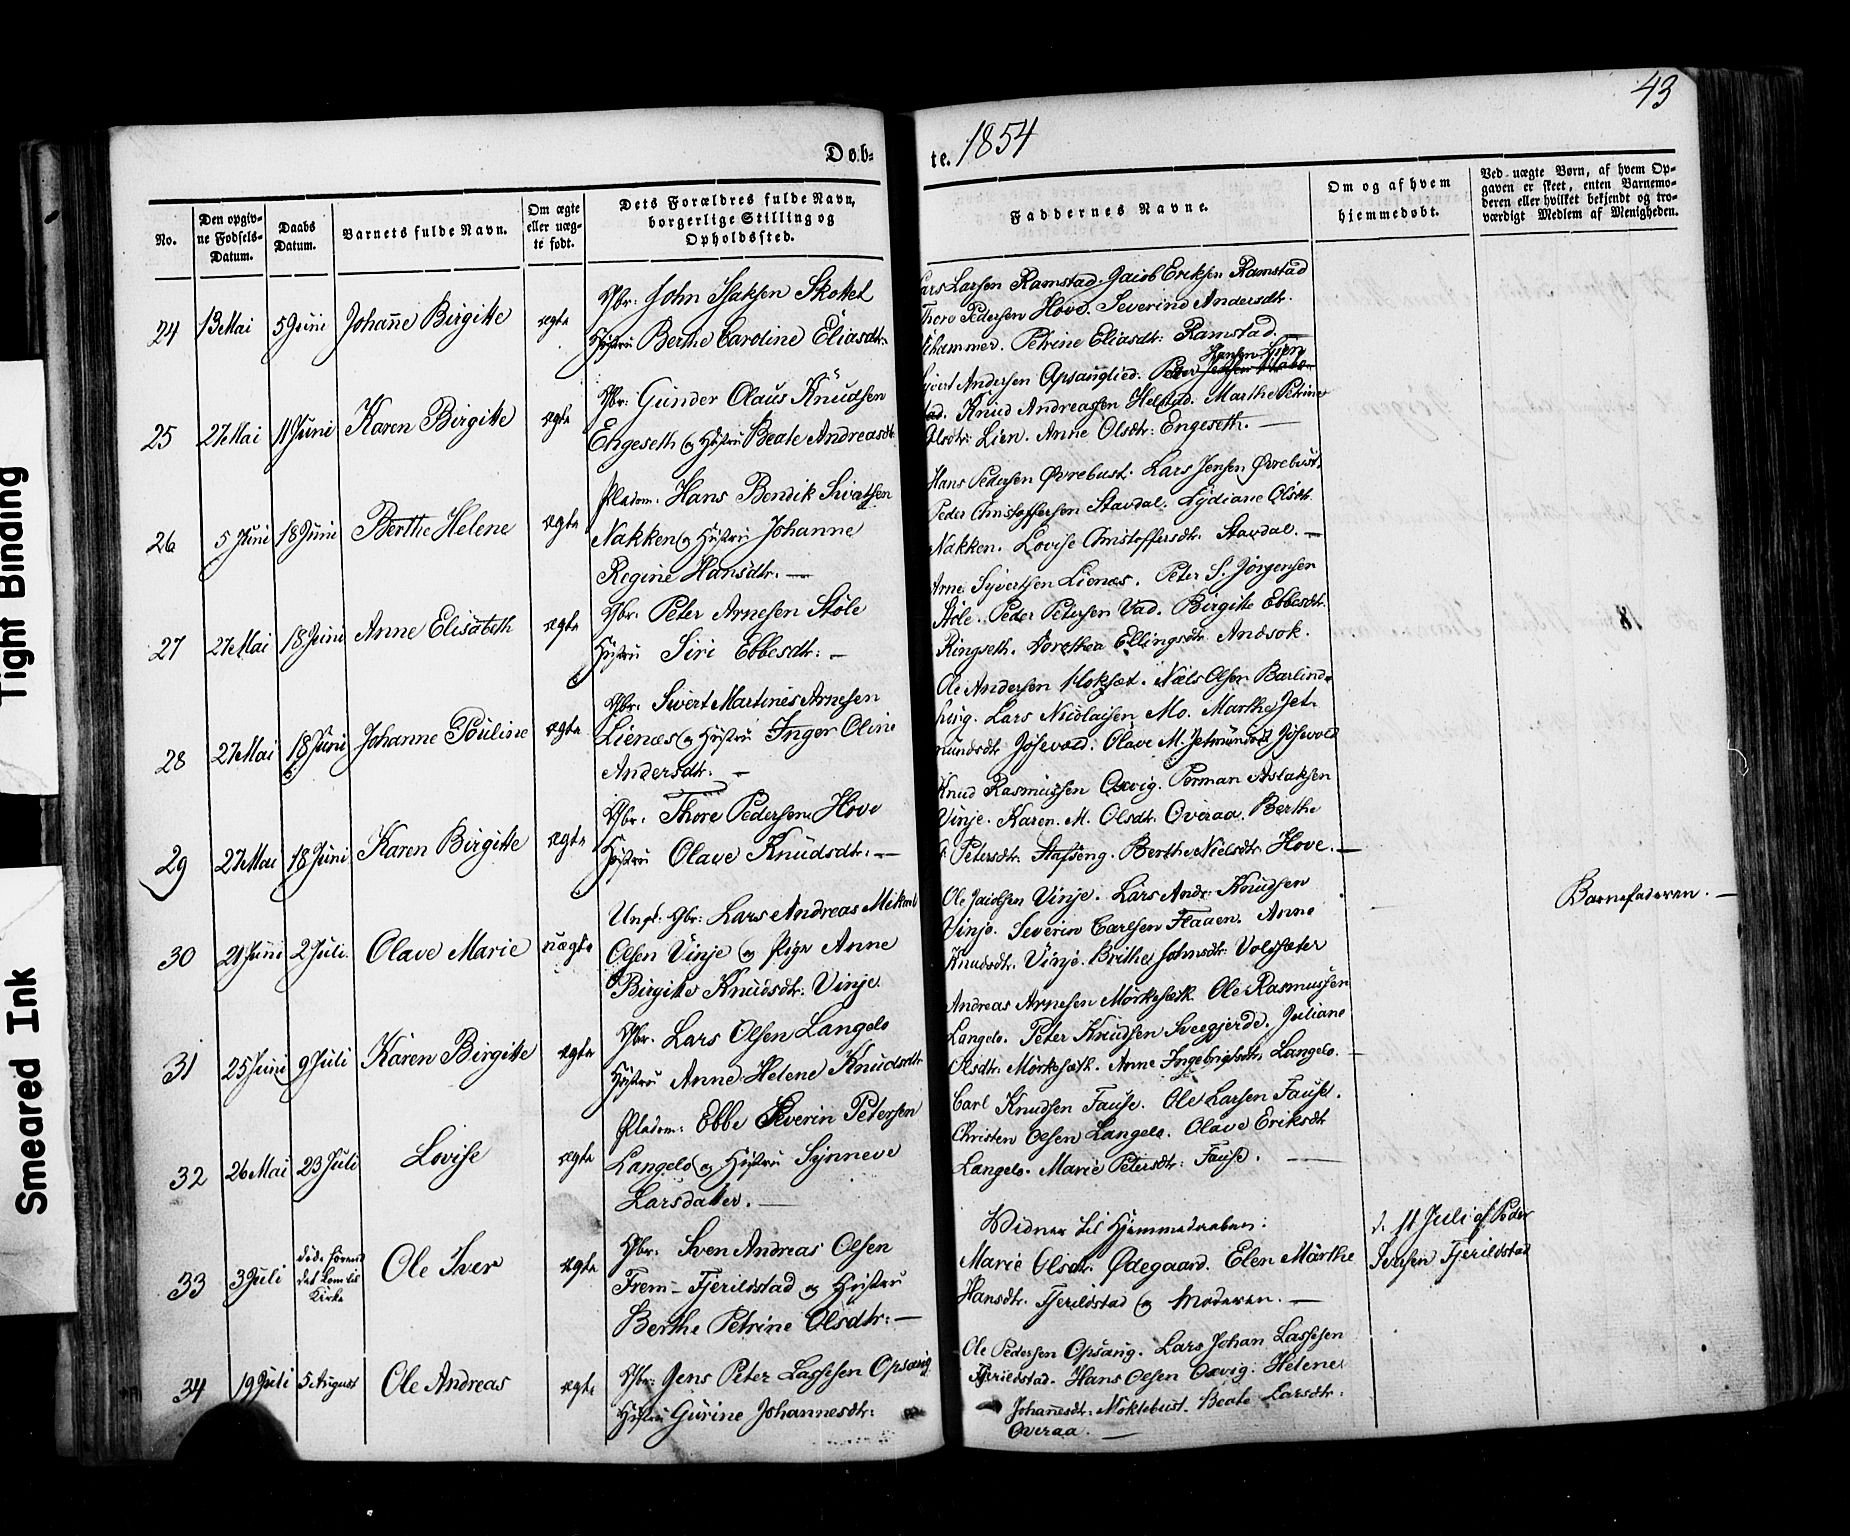 43
Døb-
te. 1854
No.
Den opgiv-
ne Fødsels-
Datum.
Daabs
Datum.
Barnets fulde Navn.
Om ægte
eller uæg-
te født.
Dets Forældres fulde Navn,
borgerlige Stilling og
Opholdssted.
Faddernes Navne.
Om og af hvem
hjemmedøbt.
Ved uægte Børn, af hvem Op-
gaven er skeet, enten Barnemo-
deren eller hvilket bekjendt og tro-
værdigt Medlem af Menigheden.
24 13 Mai 5 Juni Johanne Birgitte ægte
Gbr: John Isaksen Skottet
Hustru Berthe Caroline Eliasdtr.
Lars Larsen Ramstad. Jacob Eriksen Ramstad
Thore Pedersen Hove. Severine Andersdtr.
Petrine Eliasdtr: Ramstad. —
25 27 Mai 11 Juni Karen Birgitte ægte
Gbr: Gunder Olaus Knudsen
Engeseth og Hustru Beate Andreasdtr
Hansen Lien
Sivert Andersen Opsanglied. Peder
Knud Andreassen Helstad. Marthe Petrine
Olsdtr: Lien. Anne Olsdtr: Engeseth. —
26 5 Juni 18 Juni Berthe Helene ægte
Pladsm: Hans Bendik Sivertsen
Nakken og Hustru Johanne
Regine Hansdtr. —
Hans Pedersen Øvrebust. Lars Jensen Øvrebust.
Peder Christoffersen Stavdal. Lydiane Olsdtr.
Nakken. Lovise Christoffersdtr. Stavdal. —
27 27 Mai 18 Juni Anne Elisabeth ægte
Gbr: Peter Arnesen Støle
Hustru Siri Ebbesdtr: —
Arne Syvertsen Lienæs. Peter S. Jørgensen
Støle. Peder Petersen Vad. Birgitte Ebbesdtr.
Ringseth. Dorothea Ellingsdtr. Andsok.
28 27 Mai 18 Juni Johanne Pouline ægte
Gbr: Sivert Martines Arnesen
Lienæs og Hustru Inger Oline
Andersdtr. —
Ole Andersen Moksæt. Niels Olsen Barlind-
houg. Lars Nicolaisen Mo. Marthe Jet-
mundsdtr Jøsevold. Olave M. Jetmundsdtr Jøsevold
29 27 Mai 18 Juni Karen Birgitte ægte
Gbr: Thore Pedersen Hove
Hustru Olave Knudsdtr: —
Knud Rasmussen Oxvig. Perman Aslaksen
Vinje. Karen. M. Olsdtr. Overaa. Berthe
Petersdtr. Stafseng. Berthe Nielsdtr. Hove. —
30 21 Juni 2 Juli. Olave Marie uægte
Ungk: Gbr: Lars Andreas Mikael
Olsen Vinje og Pige Anne
Birgitte Knudsdtr: Vinje.
Ole Jacobsen Vinje. Lars Andr: Knudsen
Vinje. Severin Carlsen Flaaen. Anne
Knudsdtr. Vinje. Brithe Johnsdtr. Voldsæter
Barnefaderen. —
31 25 Juni 9 Juli Karen Birgitte ægte
Gbr. Lars Olsen Langelo
Hustru Anne Helene Knudsdtr
Andreas Arnesen Mørkesæth. Ole Rasmussen
Langelo. Peter Knudsen Sveegjerde. Juliane
Olsdtr: Mørkesæth. Anne Ingebrigtsdtr. Langelo. —
32 26 Mai 23 Juli Lovise ægte
Pladsm: Ebbe Severin Petersen
Langelo og Hustru Synneve
Larsdatter. —
Carl Knudsen Fause. Ole Larsen Fause.
Christen Olsen Langelo. Olave Eriksdtr
Langelo. Marie Petersdtr: Fause. —
33 3 Juli døde førend
det kom til
Kirke
Ole Iver ægte
Gbr. Sven Andreas Olsen
Frem-Fjerildstad og Hustru
Berthe Petrine Olsdtr: —
Vidner til Hjemmedaaben:
Marie Olsdtr. Ødegaard. Elen Marthe
Hansdtr. Fjerildstad og Moderen. —
d. 11 Juli af Peder
Iversen Fjerildstad
34 19 Juli 5 August Ole Andreas ægte
Gbr: Jens Peter Lassesen Opsang
Hustru Gurine Johannesdtr:
Ole Pedersen Opsang. Lars Johan Lassesen
Fjerildstad. Hans Olsen Oxvig. Helene
Johannesdtr. Moktebust. Beate Larsdtr:
Overaa. —
Tight Binding
Smeared Ink